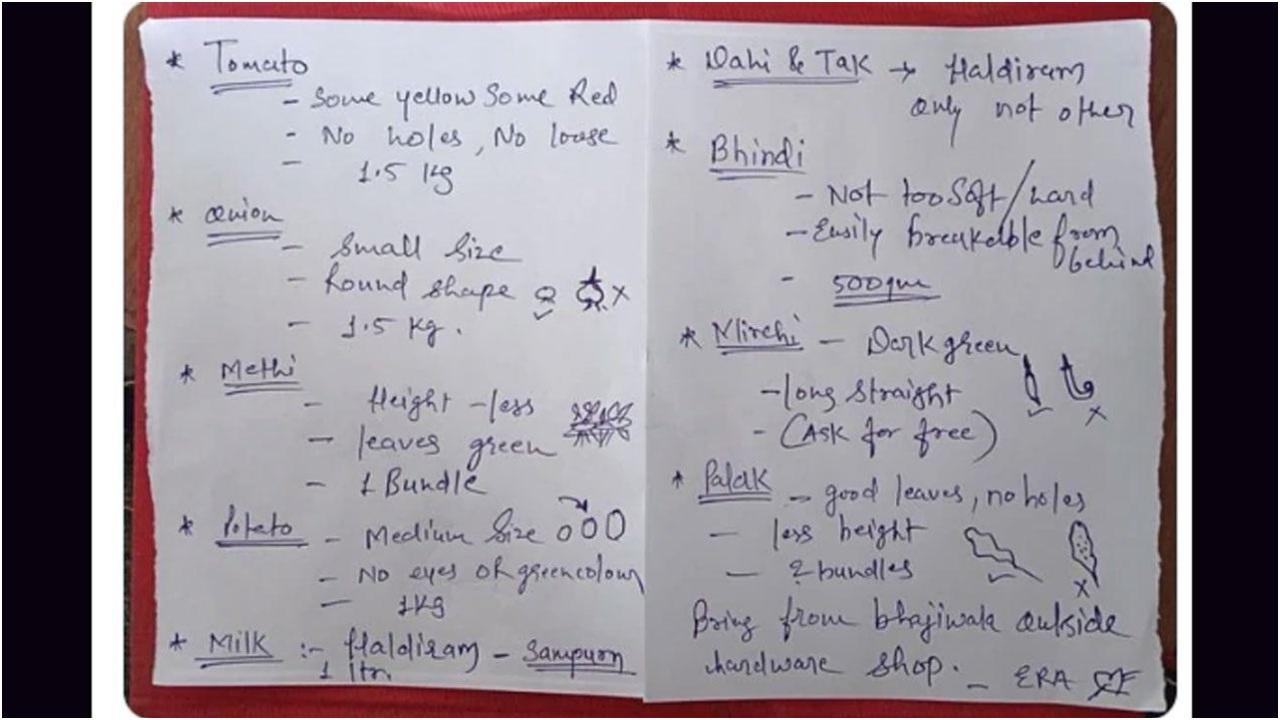 * Tomato
- Some yellow Some Red
- No holes, No loose
- 1.5 Kg
* Onion
- Small Size
- Round shape
- 1.5 Kg.
* Methi
- Height - less
- leaves green
- 1 Bundle
* Potato - Medium Size
- No eyes or green colour
- 1 Kg
* Milk :- Haldiram - Sampurn
1 ltr.
* Dahi & Tak → Haldiram
only not other
* Bhindi
- Not too Soft/hard
- Easily breakable from
behind
- 500gm
* Mirchi - Dark green
- long straight
- (Ask for free)
* Palak - good leaves, no holes
- less height
- 2 bundles
Bring from bhajiwala outside
hardware shop. - ERA